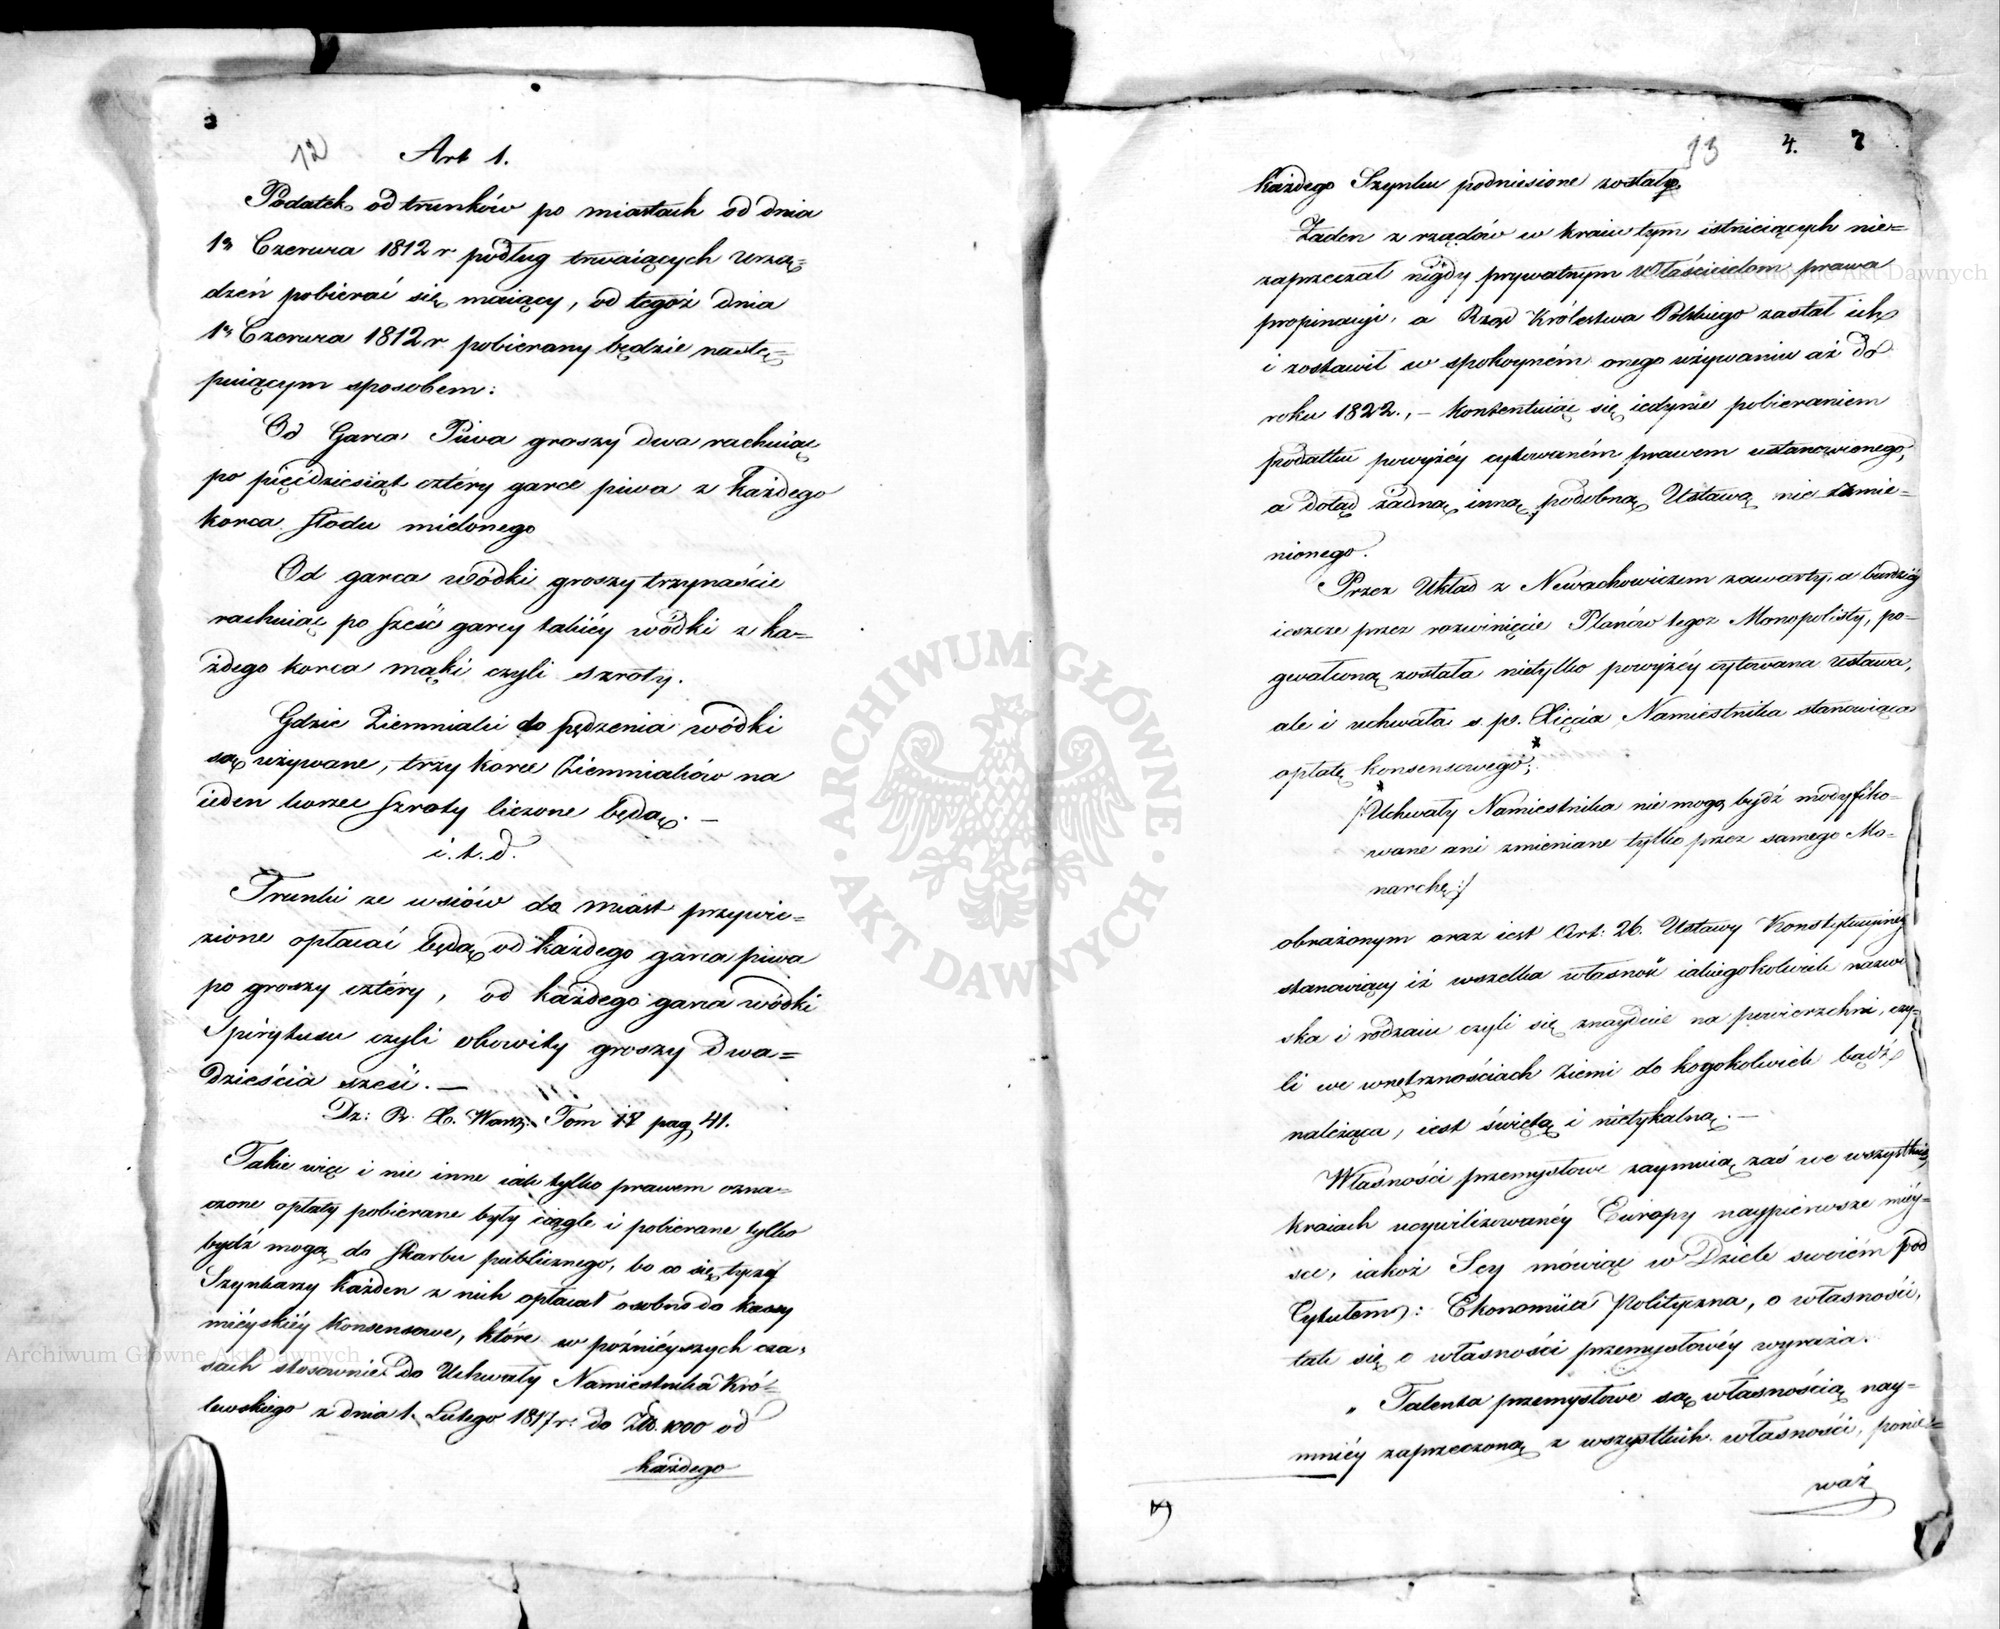 12
Art 1.
Podatek od trunków po miastach od dnia
1º Czerwca 1812 r podług trwaiących Urzą=
dzeń pobierać się maiący, od tegoż dnia
1º Czerwca 1812 r pobierany będzie nastę=
puiącym sposobem:
Od Garca Piwa groszy dwa rachuiąc
po pięćdziesiąt cztéry garce piwa z każdego
korca słodu mielonego
Od garca wódki groszy trzynaście
rachuiąc po sześć garcy takiéy wódki z ka=
żdego korca mąki czyli szroty.
Gdzie Ziemniaki do pędzenia wódki
są używane, trzy korce Ziemniaków na
ieden korzec szroty liczone będą. —
i. t. d.
Trunki ze wsiów do miast przywie=
zione opłacać będą od każdego garca piwa
po groszy cztéry, od każdego garca wódki
Spirytusu czyli okowity groszy dwa=
dzieścia sześć. —
Dz: Pr. X. Warsz. Tom IV pag 41.
Takie więc i nie inne iak tylko prawem ozna=
czone opłaty pobierane były ciągle i pobierane tylko
bydź mogą do skarbu publicznego, bo co się tyczy
Szynkarzy każden z nich opłacał osobno do kassy
miéyskiéy konsensowe, które w późniéyszych cza=
sach stosownie do Uchwały Namiestnika Kró=
lewskiego z dnia 1. Lutego 1817 r: do Złł. 1000 od
każdego
13 4. 7
każdego Szynku podniesione zostały.
Żaden z rządów w kraiu tym istnieiących nie=
zaprzeczał nigdy prywatnym Właścicielom prawa
propinacyi, a Rząd Królestwa Polskiego zastał ich
i zostawił w spokoyném onego używaniu aż do
roku 1822., — kontentuiąc się iedynie pobieraniem
podatku powyżéy cytowaném prawem ustanowionego,
a dotąd żadną inną podobną Ustawą nie zmie=
nionego.
Przez Układ z Newachowiczem zawarty, a bardziéy
ieszcze przez rozwinięcie Planów tegoż Monopolisty, po=
gwałconą została nietylko powyżéy cytowana Ustawa,
ale i uchwała s. p. Xięcia Namiestnika stanowiąca
opłatę konsensowego;
/:Uchwały Namiestnika nie mogą bydź modyfiko=
wane ani zmieniane tylko przez samego Mo=
narchę:/
obrażonym oraz iest Art: 26. Ustawy Konstytucyinéy
stanowiący iż wszelka własność iakiegokolwiek nazwi
ska i rodzaiu czyli się znayduie na powierzchni, czy=
li we wnętrznościach Ziemi do kogokolwiek bądź
należąca, iest świętą i nietykalną. —
Własności przemysłowe zaymuią zaś we wszystkich
kraiach ucywilizowanéy Europy naypierwsze miéy=
sce, iakoż Sey mówiąc w Dziele swoiém pod
Tytułem: Ekonomiia Polityczna, o własności,
tak się o własności przemysłowéy wyraża:
„ Talenta przemysłowe są własnością nay=
mniéy zaprzeczoną z wszystkich własności, ponie=
waż
ARCHIWUM GŁÓWNE AKT DAWNYCH
Archiwum Główne Akt Dawnych
Archiwum Główne Akt Dawnych